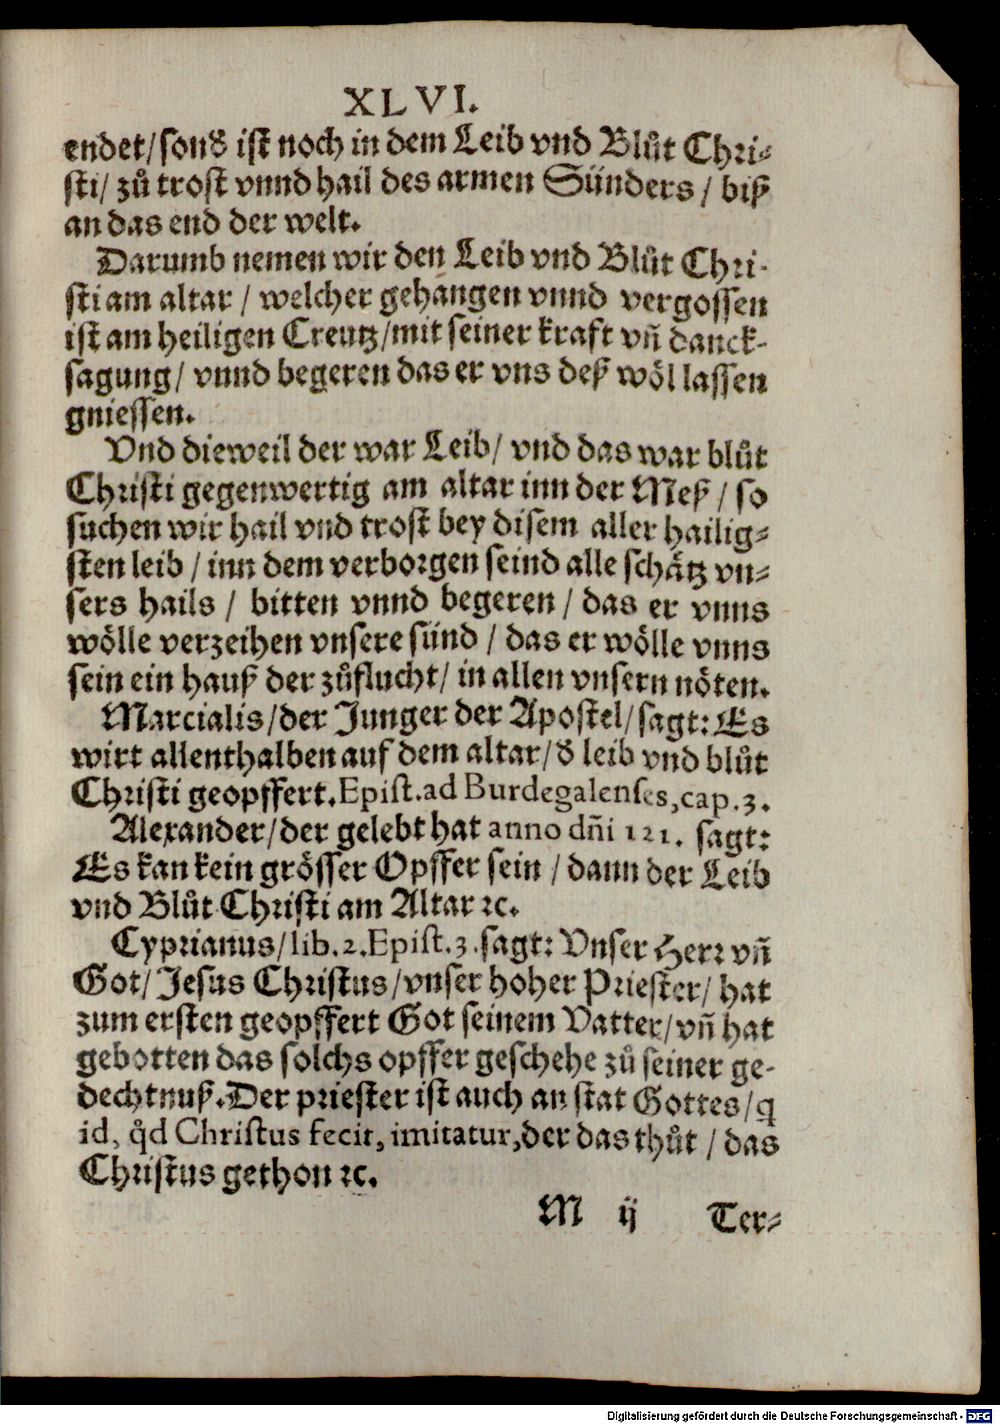 XLVI.
endet/sonđ ist noch in dem Leib vnd Blůt Chri-
sti/ zů trost vnnd hail des armen Sünders / biß
an das end der welt.
Darumb nemen wir den Leib vnd Blůt Chri-
sti am altar / welcher gehangen vnnd vergossen
ist am heiligen Creutz/mit seiner kraft vñ danck-
sagung/ vnnd begeren das er vns deß wöl lassen
gniessen.
Vnd dieweil der war Leib/ vnd das war blůt
Christi gegenwertig am altar inn der Meß / so
suchen wir hail vnd trost bey disem aller hailig-
sten leib / inn dem verborgen seind alle schätz vn-
sers hails / bitten vnnd begeren / das er vnns
wölle verzeihen vnsere sünd / das er wölle vnns
sein ein hauß der zůflucht/ in allen vnsern nöten.
Marcialis/der Junger der Apostel/sagt: Es
wirt allenthalben auf dem altar/đ leib vnd blůt
Christi geopffert. Epist. ad Burdegalenses, cap. 3.
Alexander/der gelebt hat anno dñi 121. sagt:
Es kan kein grösser Opffer sein / dann der Leib
vnd Blůt Christi am Altar ꝛc.
Cyprianus/lib. 2. Epist. 3. sagt: Vnser Herr vñ
Got/ Jesus Christus/vnser hoher Priester/ hat
zum ersten geopffert Got seinem Vatter/vñ hat
gebotten das solchs opffer geschehe zů seiner ge-
dechtnuß. Der priester ist auch an stat Gottes/ꝗ
id, q̊d Christus fecit, imitatur, der das thůt / das
Christus gethon ꝛc.
M ij Ter-
Digitalisierung gefördert durch die Deutsche Forschungsgemeinschaft - DFG